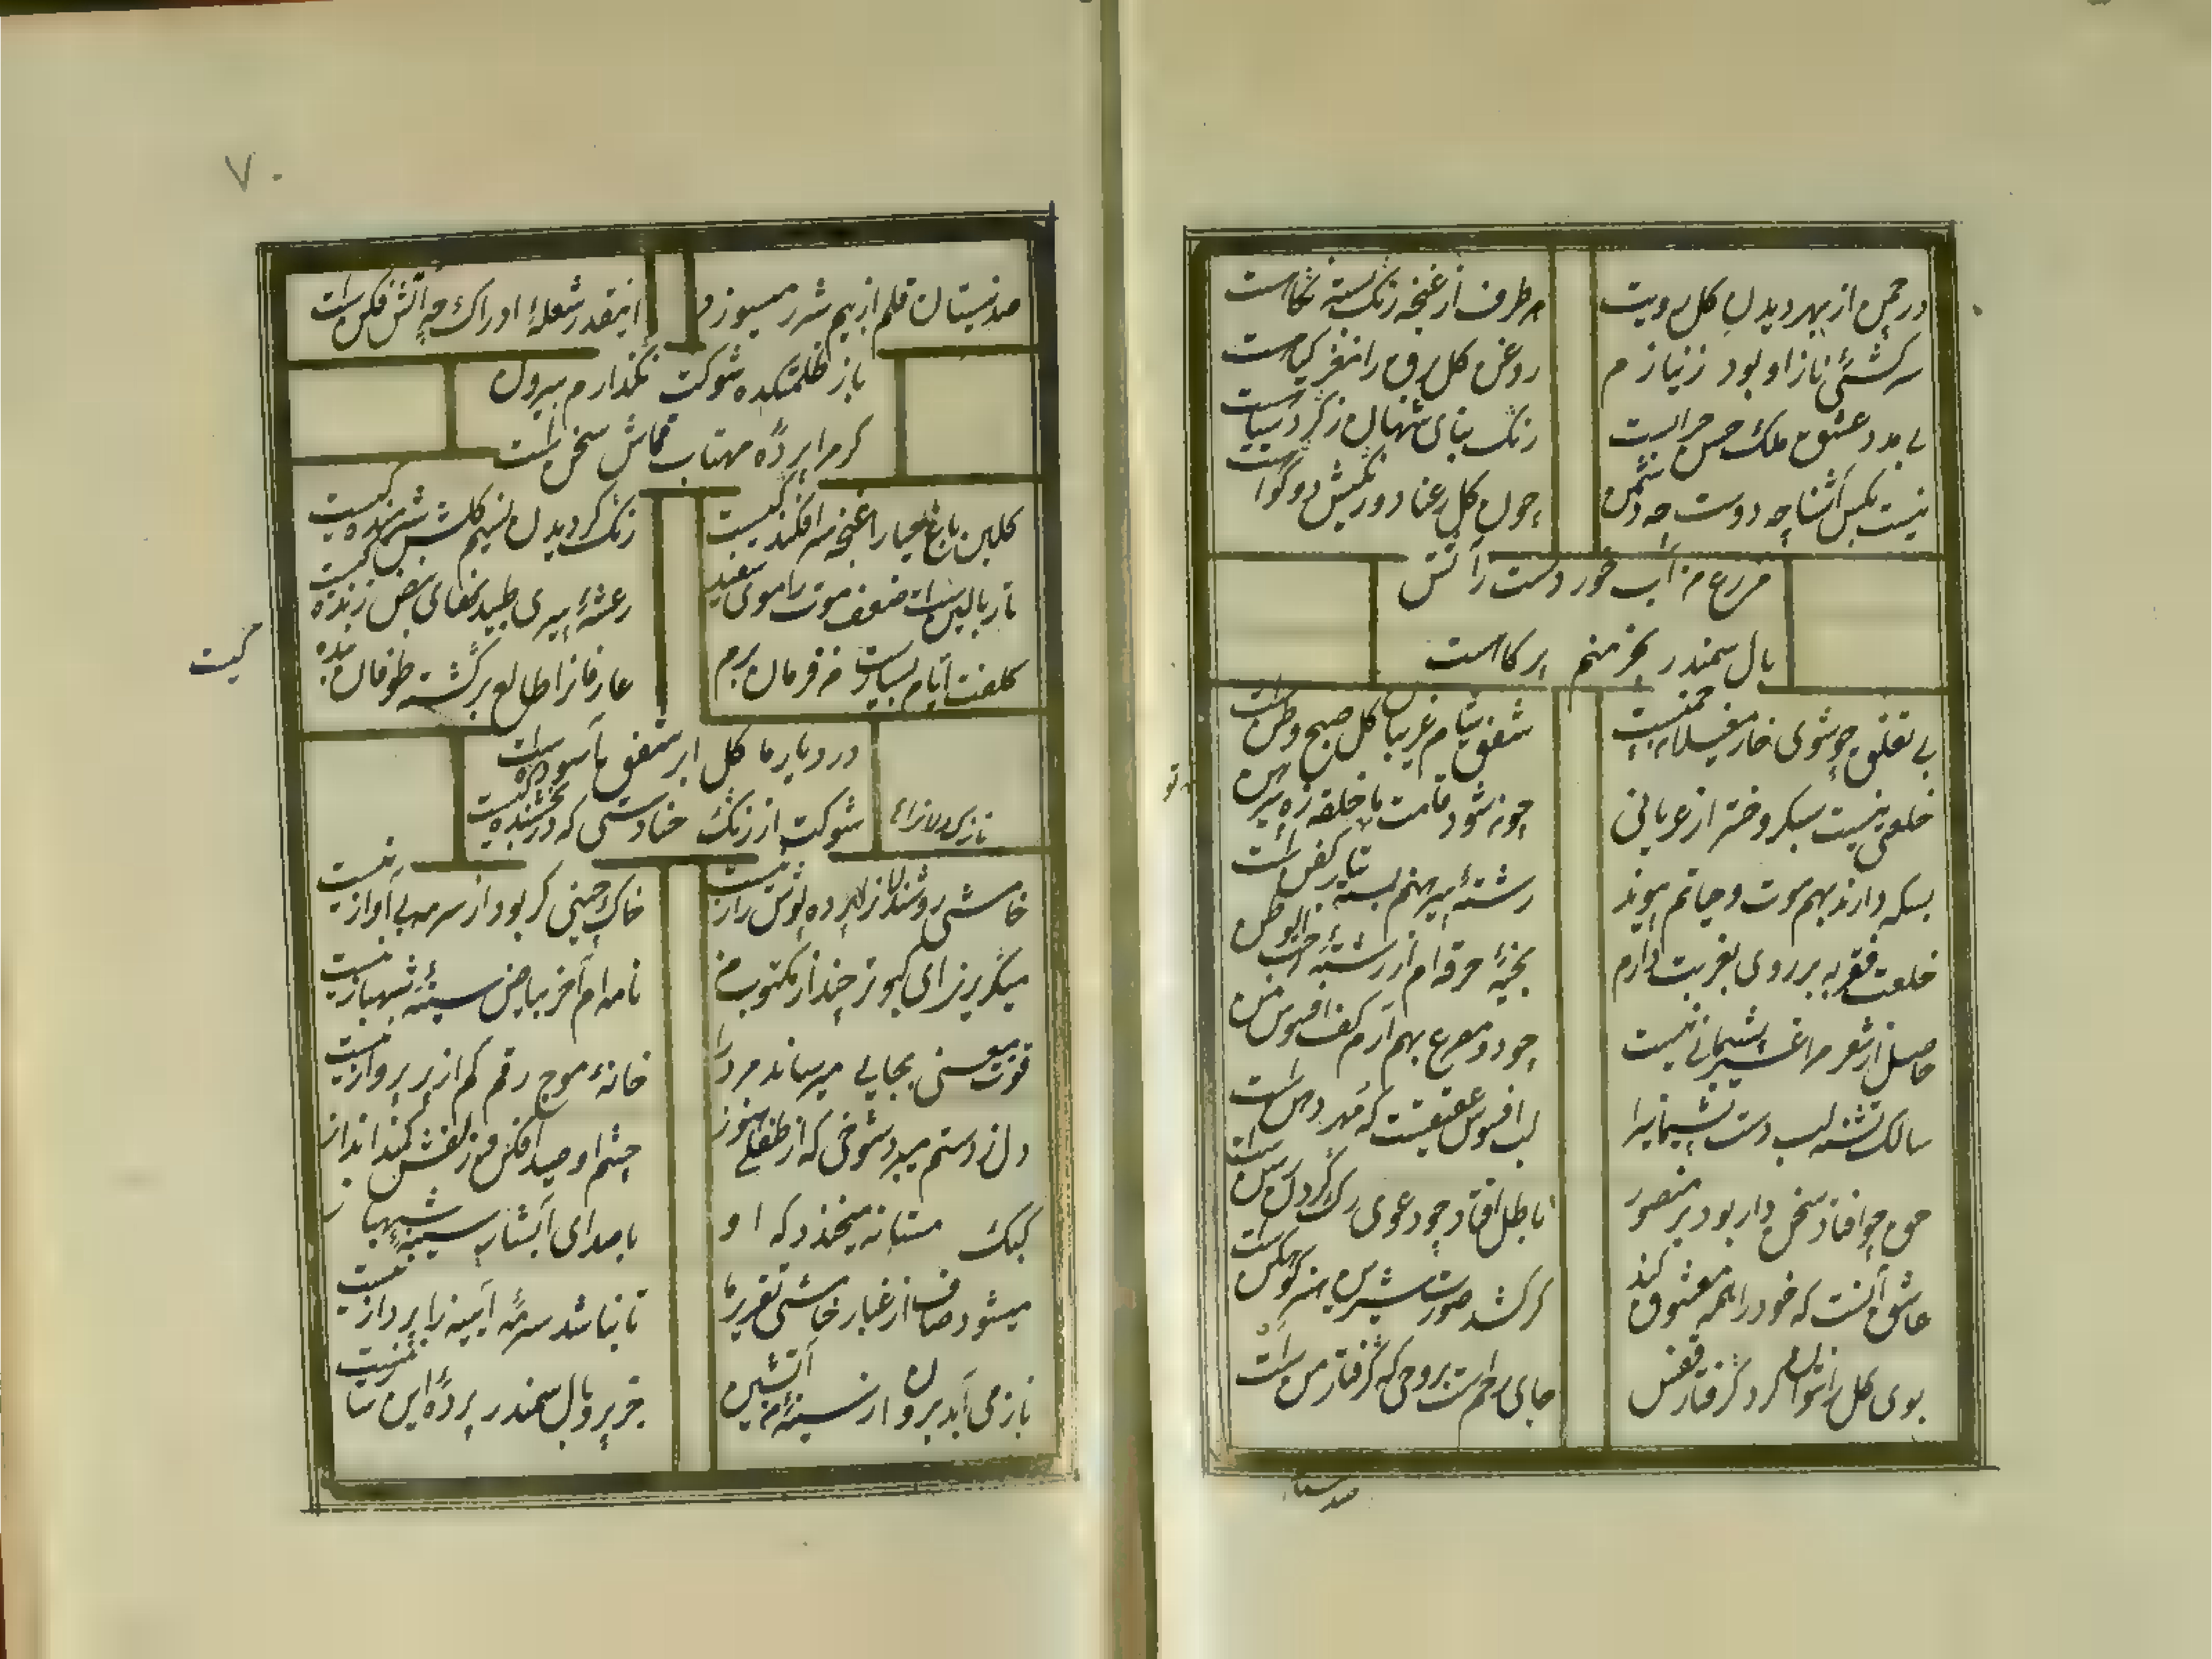 در چمن از بهر دیدن گل رویت
هر طرف از غنچه رنگ بسته نگاست
سرکشئ ناز او بود ز نیازم
روغن گل برق را نمغز گیاست
بی مدد عشق ملک حسن خرابست
رنگ بنای شهان ز گرد سپاست
نیست بکس آشنا چه دوست چه دشمن
چون گل رعنا دو رنگیش دو گواست
مزرع من آب خورد است ز آتش
بال سمندر بخرمنم پر کاست
بی تعلق چو شوی خار مغیلان چمنست
شفق شام غریبان گل صبح وطنست
خلعتی نیست سبکروحتر از عریانی
چونه شود قامت ما حلقه زه پیرهن
بسکه دارند بهم موت و حیاتم پیوند
رشتهٔ پیرهنم بسته بتار کفنست
خلعت فقر به بر روی بغربت دارم
بخیهٔ خرقه ام از رشتهٔ حب الوطن
حاصل از شعر مرا غیر پشیمانی نیست
چو دو مصرع بهم آرم کف افسوس منست
سالک تشنه لب دست پشیمانیرا
لب افسوس عقیقیست که در دهن است
حق چو افتاد سخن دار بود بر منصور
باطل افتاد چو دعوی رگ گردن رسن است
عاشق آنست که خود را همه معشوق کند
گر کشد صورت شیرین هنر کوهکن است
بوی گل را نتوان کرد گرفتار قفس
جای رحم است بروحی که گرفتار من است
صد نیستان
۷۰
صد نیستان قلم از بیم شرر میسوزد
اینقدر شعلهٔ ادراک چه آتش فکن است
باز ظلمتکده شوکت نگذارم بیرون
کرم ابر پردهٔ مهتاب قماش سخن است
گلبن باغ حیا را غنچه سرافکندگیست
رنگ گردیدن نسیم گلشن شرمندگیست
تار بالین است ضعف موت را موی سفید
رعشهٔ پیری طپیدنهای نبض زندگیست
کلفت ایام بسیار است در فرمان بریم
عارفانرا طالع برگشته طوفان بندگیست
در دیار ما گل ابر شفق آسوده است
شوکت از رنگ حنا دستی که در بخشندگیست
نازکدلانرا
خامشی روشندلانرا پرده پوش راز نیست
خاک چینی گر بود از سرمه بی آواز نیست
میگریزی ای کبوتر چند از مکتوب من
نامه ام آخر بیاض سینهٔ شهباز نیست
قوت معنی بجایی میرساند مرد را
خانهٔ موج رقم کم از پر پرواز نیست
دل ز دستم میبرد شوخی که از طفلی هنوز
چشم او صیدافکن و زلفش کمند انداز نیست
کبک مستانه میخندد که او
با صدای آبشار سینهٔ شهباز
میشود صاف از غبار خامشی تقریر ما
تا نباشد سرمهٔ آیینه را پرداز نیست
ناز می آید برون از سینهٔ آتشین
جز پر و بال سمندر پردهٔ این ساز نیست